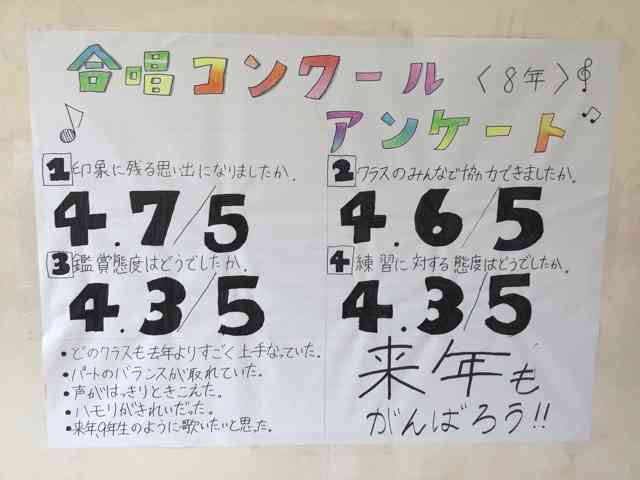 合唱コンクール〈8年〉
アンケート
1 印象に残る思い出になりましたか。
4.7/5
2 クラスのみんなで協力できましたか。
4.6/5
3 鑑賞態度はどうでしたか。
4.3/5
4 練習に対する態度はどうでしたか。
4.3/5
・どのクラスも去年よりすごく上手なっていた。
・パートのバランスが取れていた。
・声がはっきりときこえた。
・ハモリがきれいだった。
・来年、9年生のように歌いたいと思った。
来年も
がんばろう!!